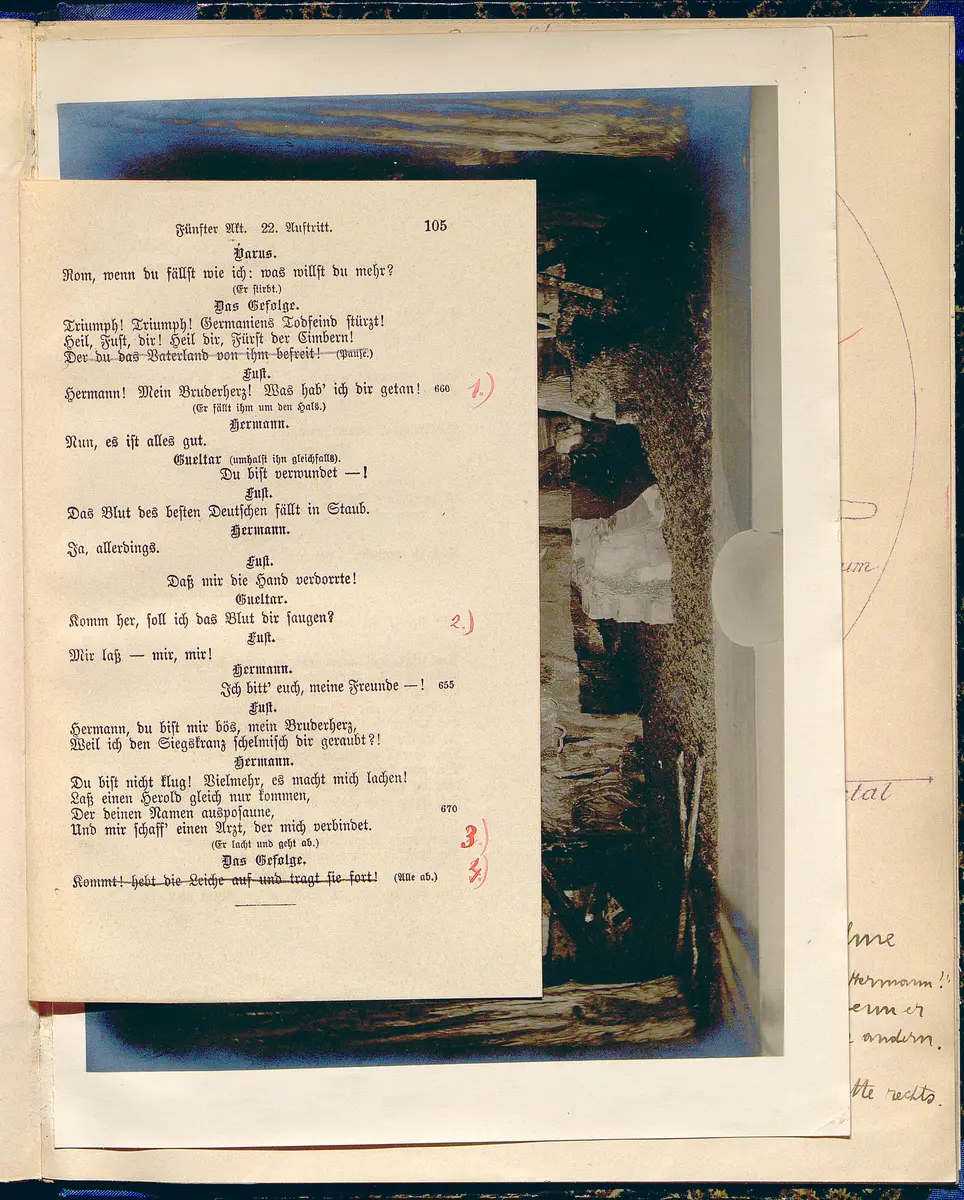 Fünfter Akt. 22. Auftritt. 105
Varus.
Rom, wenn du fällst wie ich: was willst du mehr?
(Er stirbt.)
Das Gefolge.
Triumph! Triumph! Germaniens Todfeind stürzt!
Heil, Fust, dir! Heil dir, Fürst der Cimbern!
Der du das Vaterland von ihm befreit! (Pause.)
Fust.
Hermann! Mein Bruderherz! Was hab' ich dir getan! 660 1.)
(Er fällt ihm um den Hals.)
Hermann.
Nun, es ist alles gut.
Gueltar (umhalst ihn gleichfalls).
Du bist verwundet —!
Fust.
Das Blut des besten Deutschen fällt in Staub.
Hermann.
Ja, allerdings.
Fust.
Daß mir die Hand verdorrte!
Gueltar.
Komm her, soll ich das Blut dir saugen? 2.)
Fust.
Mir laß — mir, mir!
Hermann.
Ich bitt' euch, meine Freunde —! 655
Fust.
Hermann, du bist mir bös, mein Bruderherz,
Weil ich den Siegskranz schelmisch dir geraubt?!
Hermann.
Du bist nicht klug! Vielmehr, es macht mich lachen!
Laß einen Herold gleich nur kommen,
Der deinen Namen ausposaune, 670
Und mir schaff' einen Arzt, der mich verbindet. 3.)
(Er lacht und geht ab.)
Das Gefolge.
Kommt! hebt die Leiche auf und tragt sie fort! (Alle ab.) 4.)
um
tal
Hermann!"
er
andern.
rechts.